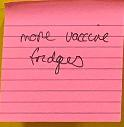 more vaccine
fridges